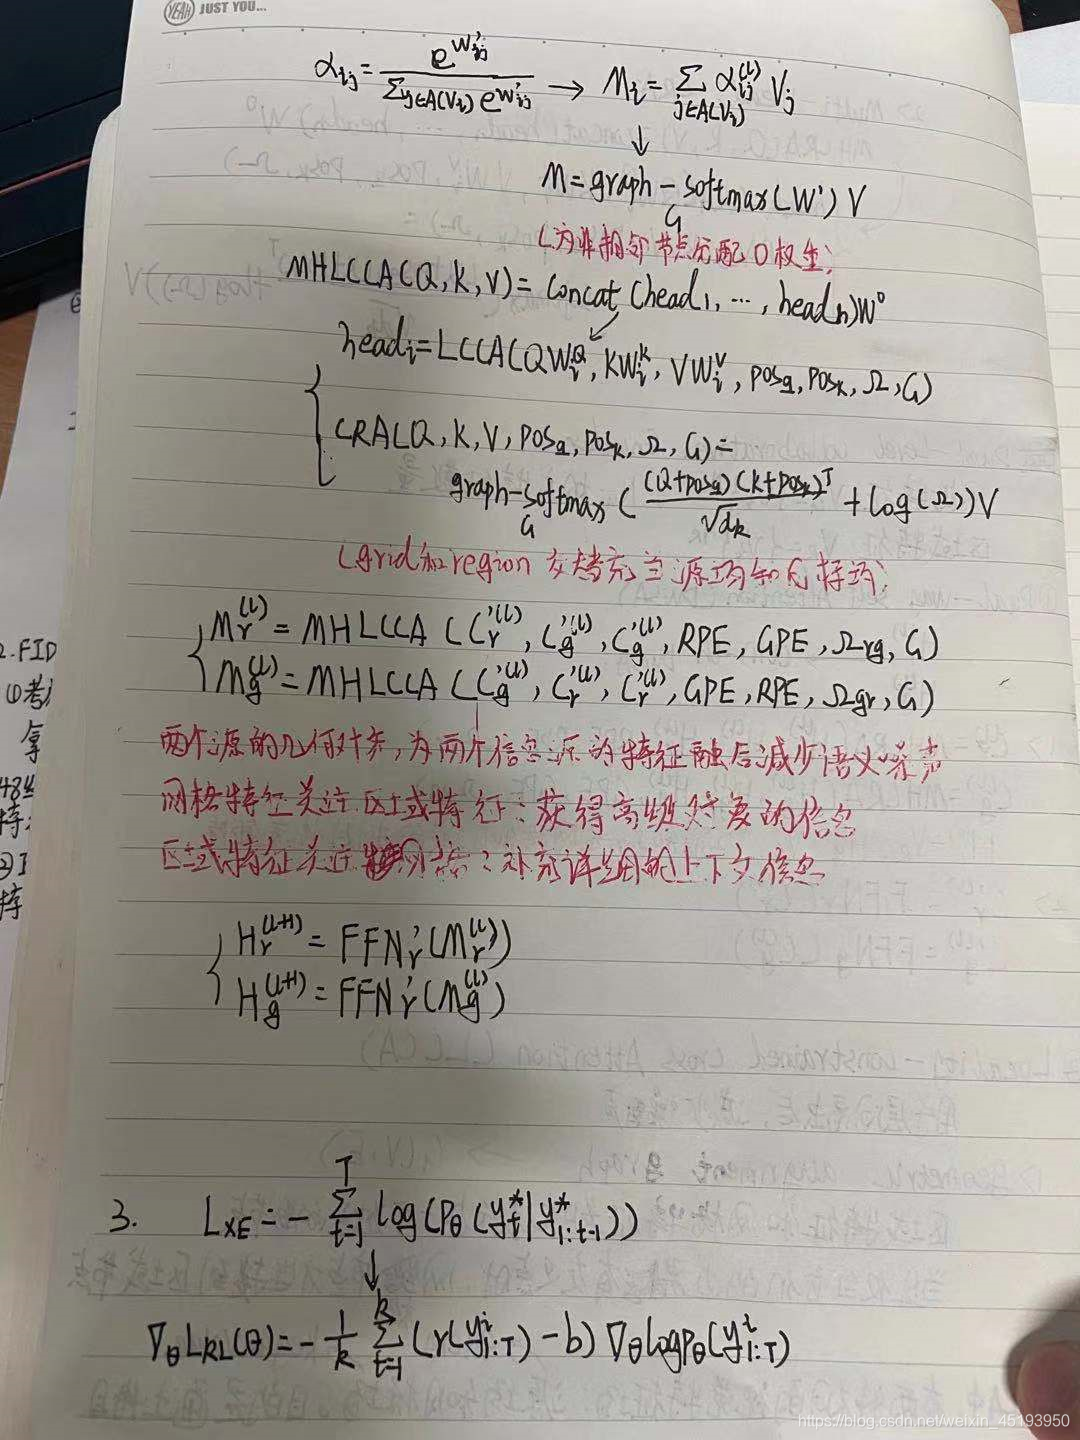 YEAH JUST YOU...
α_ij = e^{W'_ij} / Σ_{j∈A(V_i)} e^{W'_ij} → M_i = Σ_{j∈A(V_i)} α_ij^{(l)} V_j
↓
M = graph-softmax_G (W') V
(为非相邻节点分配0权重)
MHLCCA(Q, K, V) = Concat (head_1, ..., head_h)W^O
head_i = LCCA(QW_i^Q, KW_i^K, VW_i^V, pos_q, pos_k, Ω, G)
CRA(Q, K, V, pos_q, pos_k, Ω, G) =
graph-softmax_G ( (Q+pos_q)(K+pos_k)^T / √d_k + log(Ω))V
(grid和region交替充当源场和目标场)
M_r^{(l)} = MHLCCA (C_r'^{(l)}, C_g'^{(l)}, C_g'^{(l)}, RPE, GPE, Ω_rg, G)
M_g^{(l)} = MHLCCA (C_g'^{(l)}, C_r'^{(l)}, C_r'^{(l)}, GPE, RPE, Ω_gr, G)
两个源的几何对齐, 为两个信息源的特征融后减少语义噪声
网格特征关注区域特征: 获得高级对象的信息
区域特征关注网格: 补充详细的上下文信息
H_r^{(l+1)} = FFN_r' (M_r^{(l)})
H_g^{(l+1)} = FFN_r' (M_g^{(l)})
3. L_XE = - Σ_{t=1}^{T} log(P_θ (y_t^* | y_{1:t-1}^*))
↓
∇_θ L_RL(θ) = - 1/k Σ_{t=1}^{k} (r(y_{1:T}^i) - b) ∇_θ log P_θ (y_{1:T}^i)
2. FID
①考
拿
特
②
特
https://blog.csdn.net/weixin_45193950